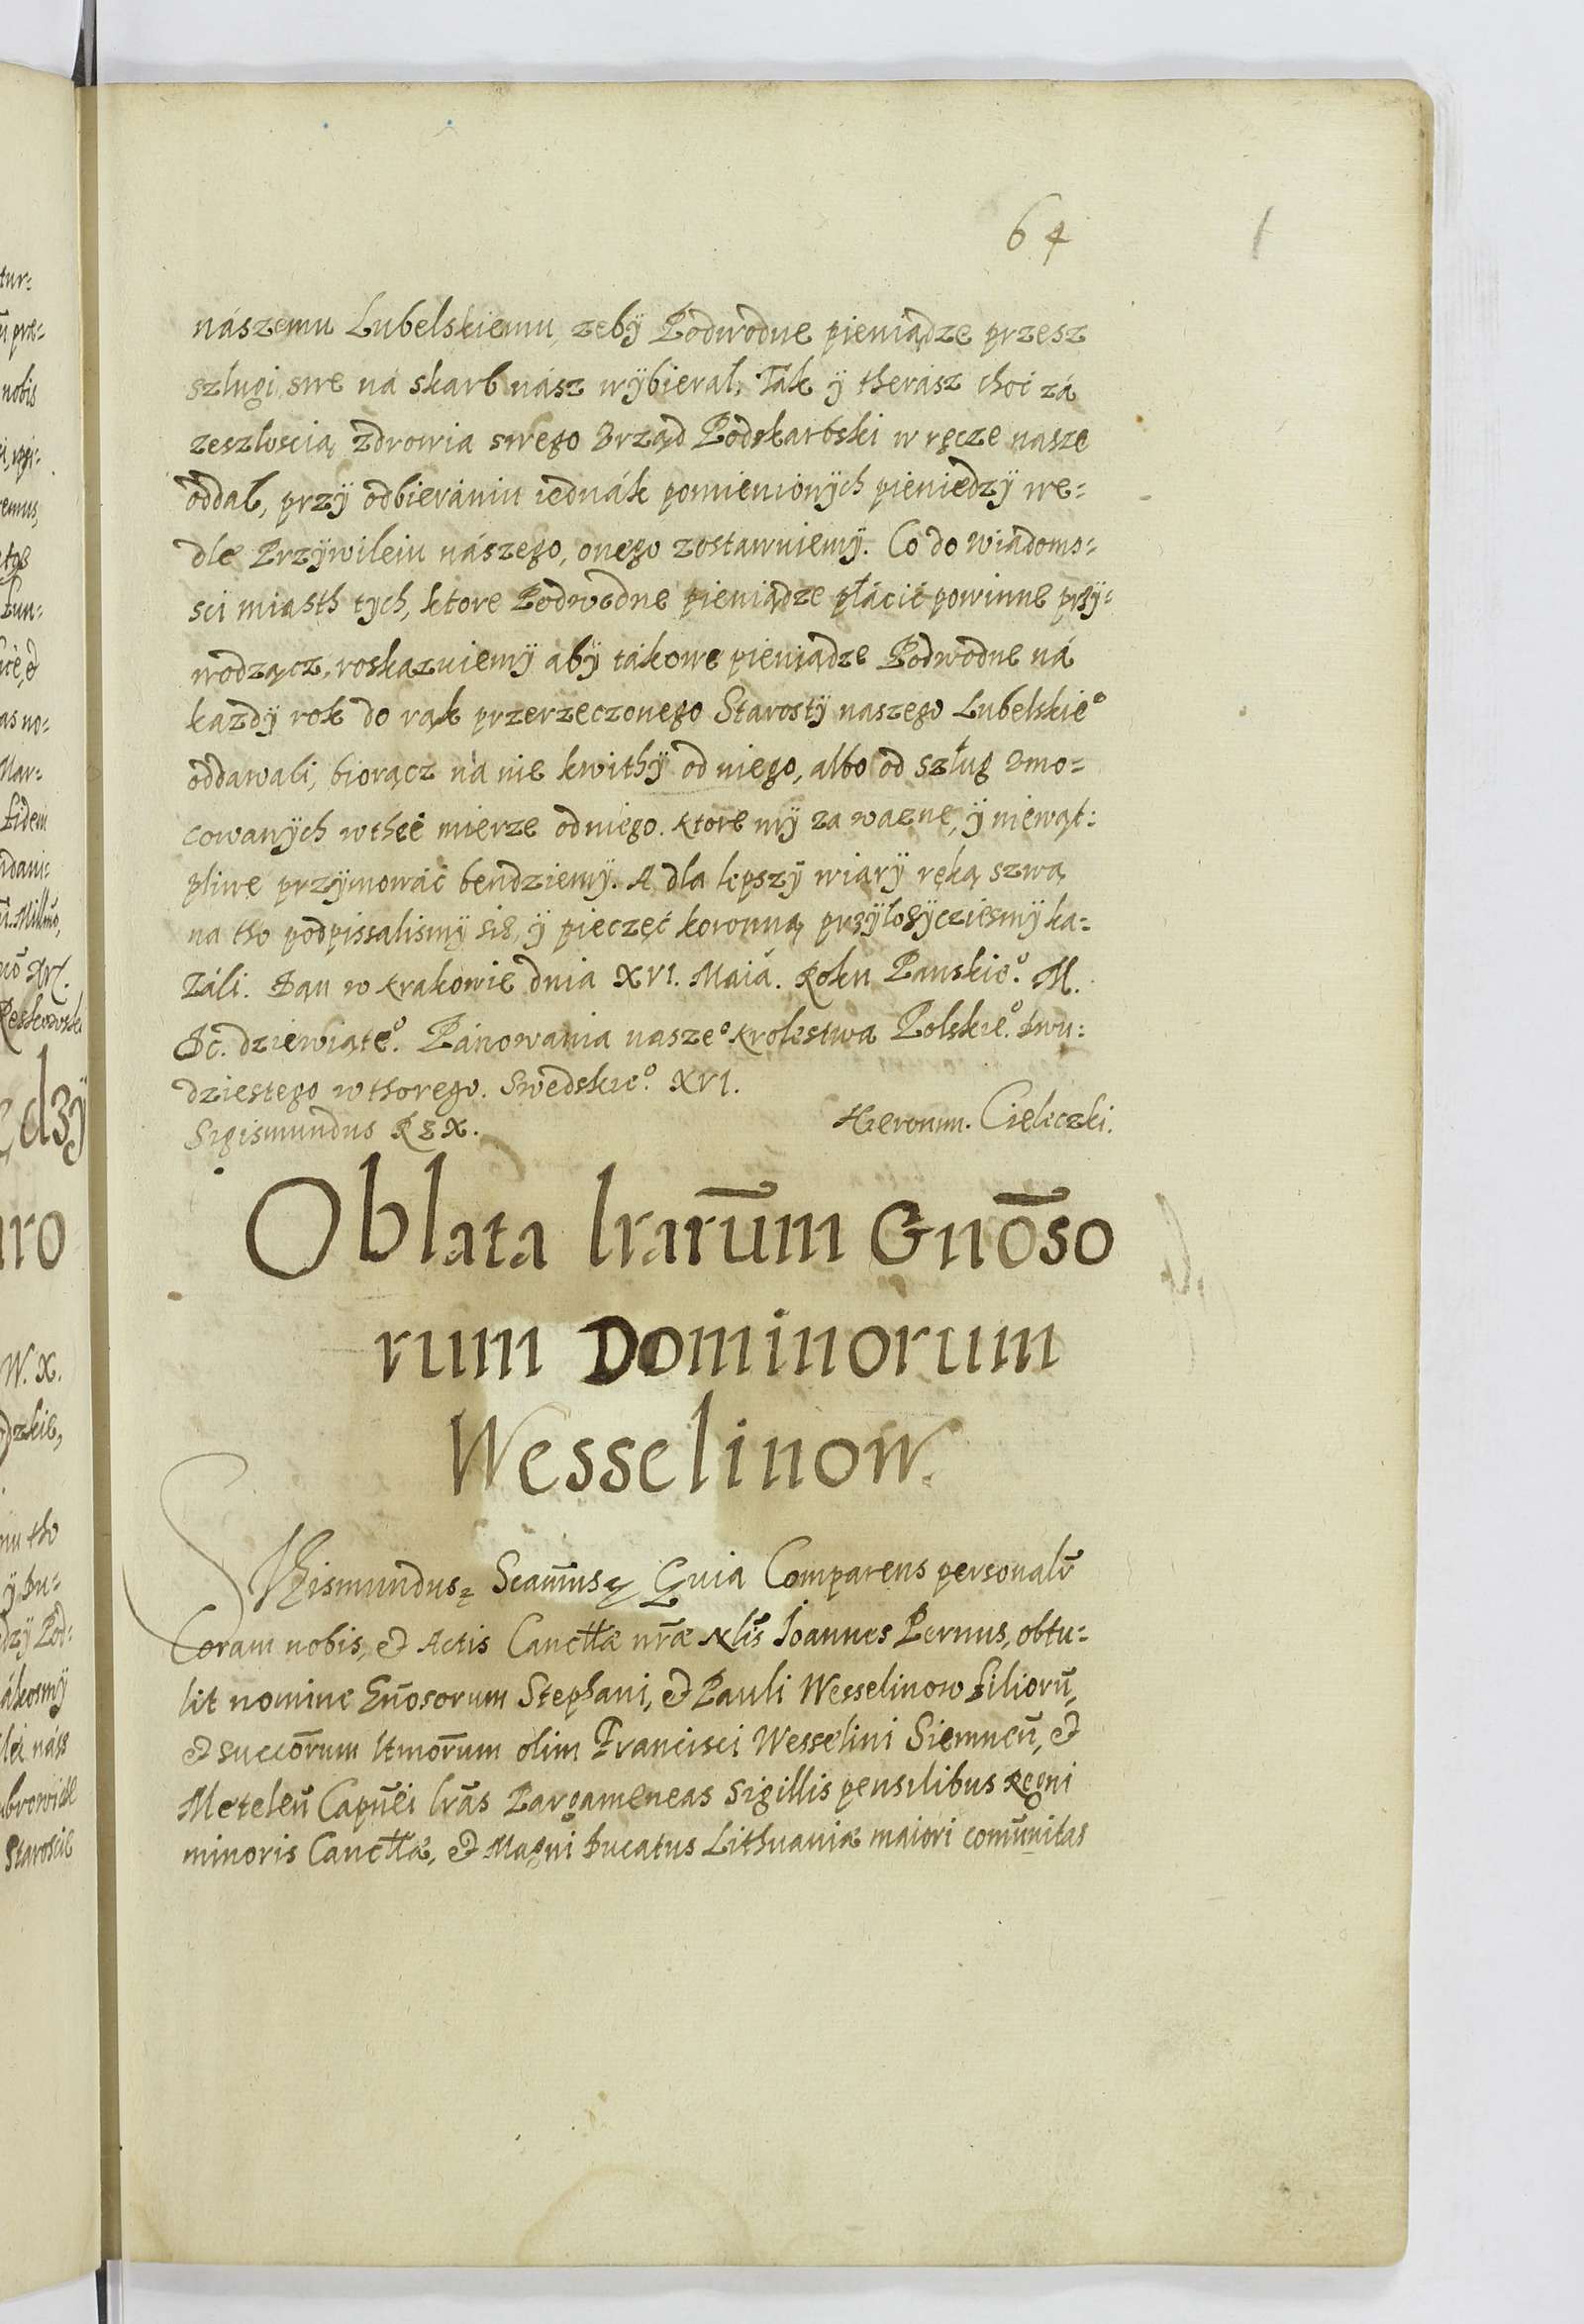 64
1
nászemu Lubelskiemu, zebÿ Podwodne pieniądze przesz
szlugi swe ná skarb nász wÿbieral, Ták ÿ therász choć zá
zeszłoscią zdrowia swego Vrząd Podskarbski w ręcze nasze
oddal, przÿ odbierániu iednák pomienionÿch pieniedzÿ we=
dle Przÿwileiu nászego, onego zostawuiemÿ. Co do wiadomo=
sci miasth tÿch, ktore Podwodne pieniądze płácić powinne przÿ=
wodzącz, roskazuiemÿ abÿ tákowe pieniądze Podwodne ná
kazdÿ rok do rąk przerzeczonego Starostÿ naszego Lubelskieº
oddawali, biorącz ná nie kwithÿ od niego, albo od szług vmo=
cowanÿch w theÿ mierze od niego. Ktore mÿ za wazne, ÿ niewąt=
pliwe przÿmować bendziemÿ. A dla lepszÿ wiarÿ ręką szwą
na tho podpissalismÿ się, ÿ pieczęć koronną przÿłozÿcziesmÿ ka=
záli. Dan w Krakowie dnia XVI. Maiá. Roku Panskieº. M.
Dc. dziewiąteº. Pánowania naszeº Krolestwa Polskieº. dwu=
dziestego wthorego. Swedskieº. XVI.
Sigismundus REX.
Hieronim. Cieleczki.
Oblata lrarum̄ Gnōso
rum Dominorum
Wesselinow.
Coram nobis, et Actis Cancllæ nr̄æ Nlis̄ Joannes Pernus, obtu=
lit nomine Gn̄osorum Stephani, et Pauli Wesselinow filiorū,
et succōrum ltmōrum olim Francisci Wesselini Siemneñ, et
Meteleñ Capn̄ei lrās Pargameneas sigillis pensilibus Regni
minoris Cancllæ, et Magni Ducatus Lithuaniæ maiori comūnitas